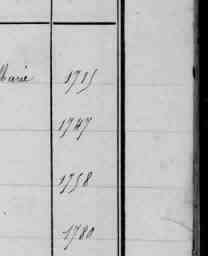 Marie 1715
1747
1758
1780